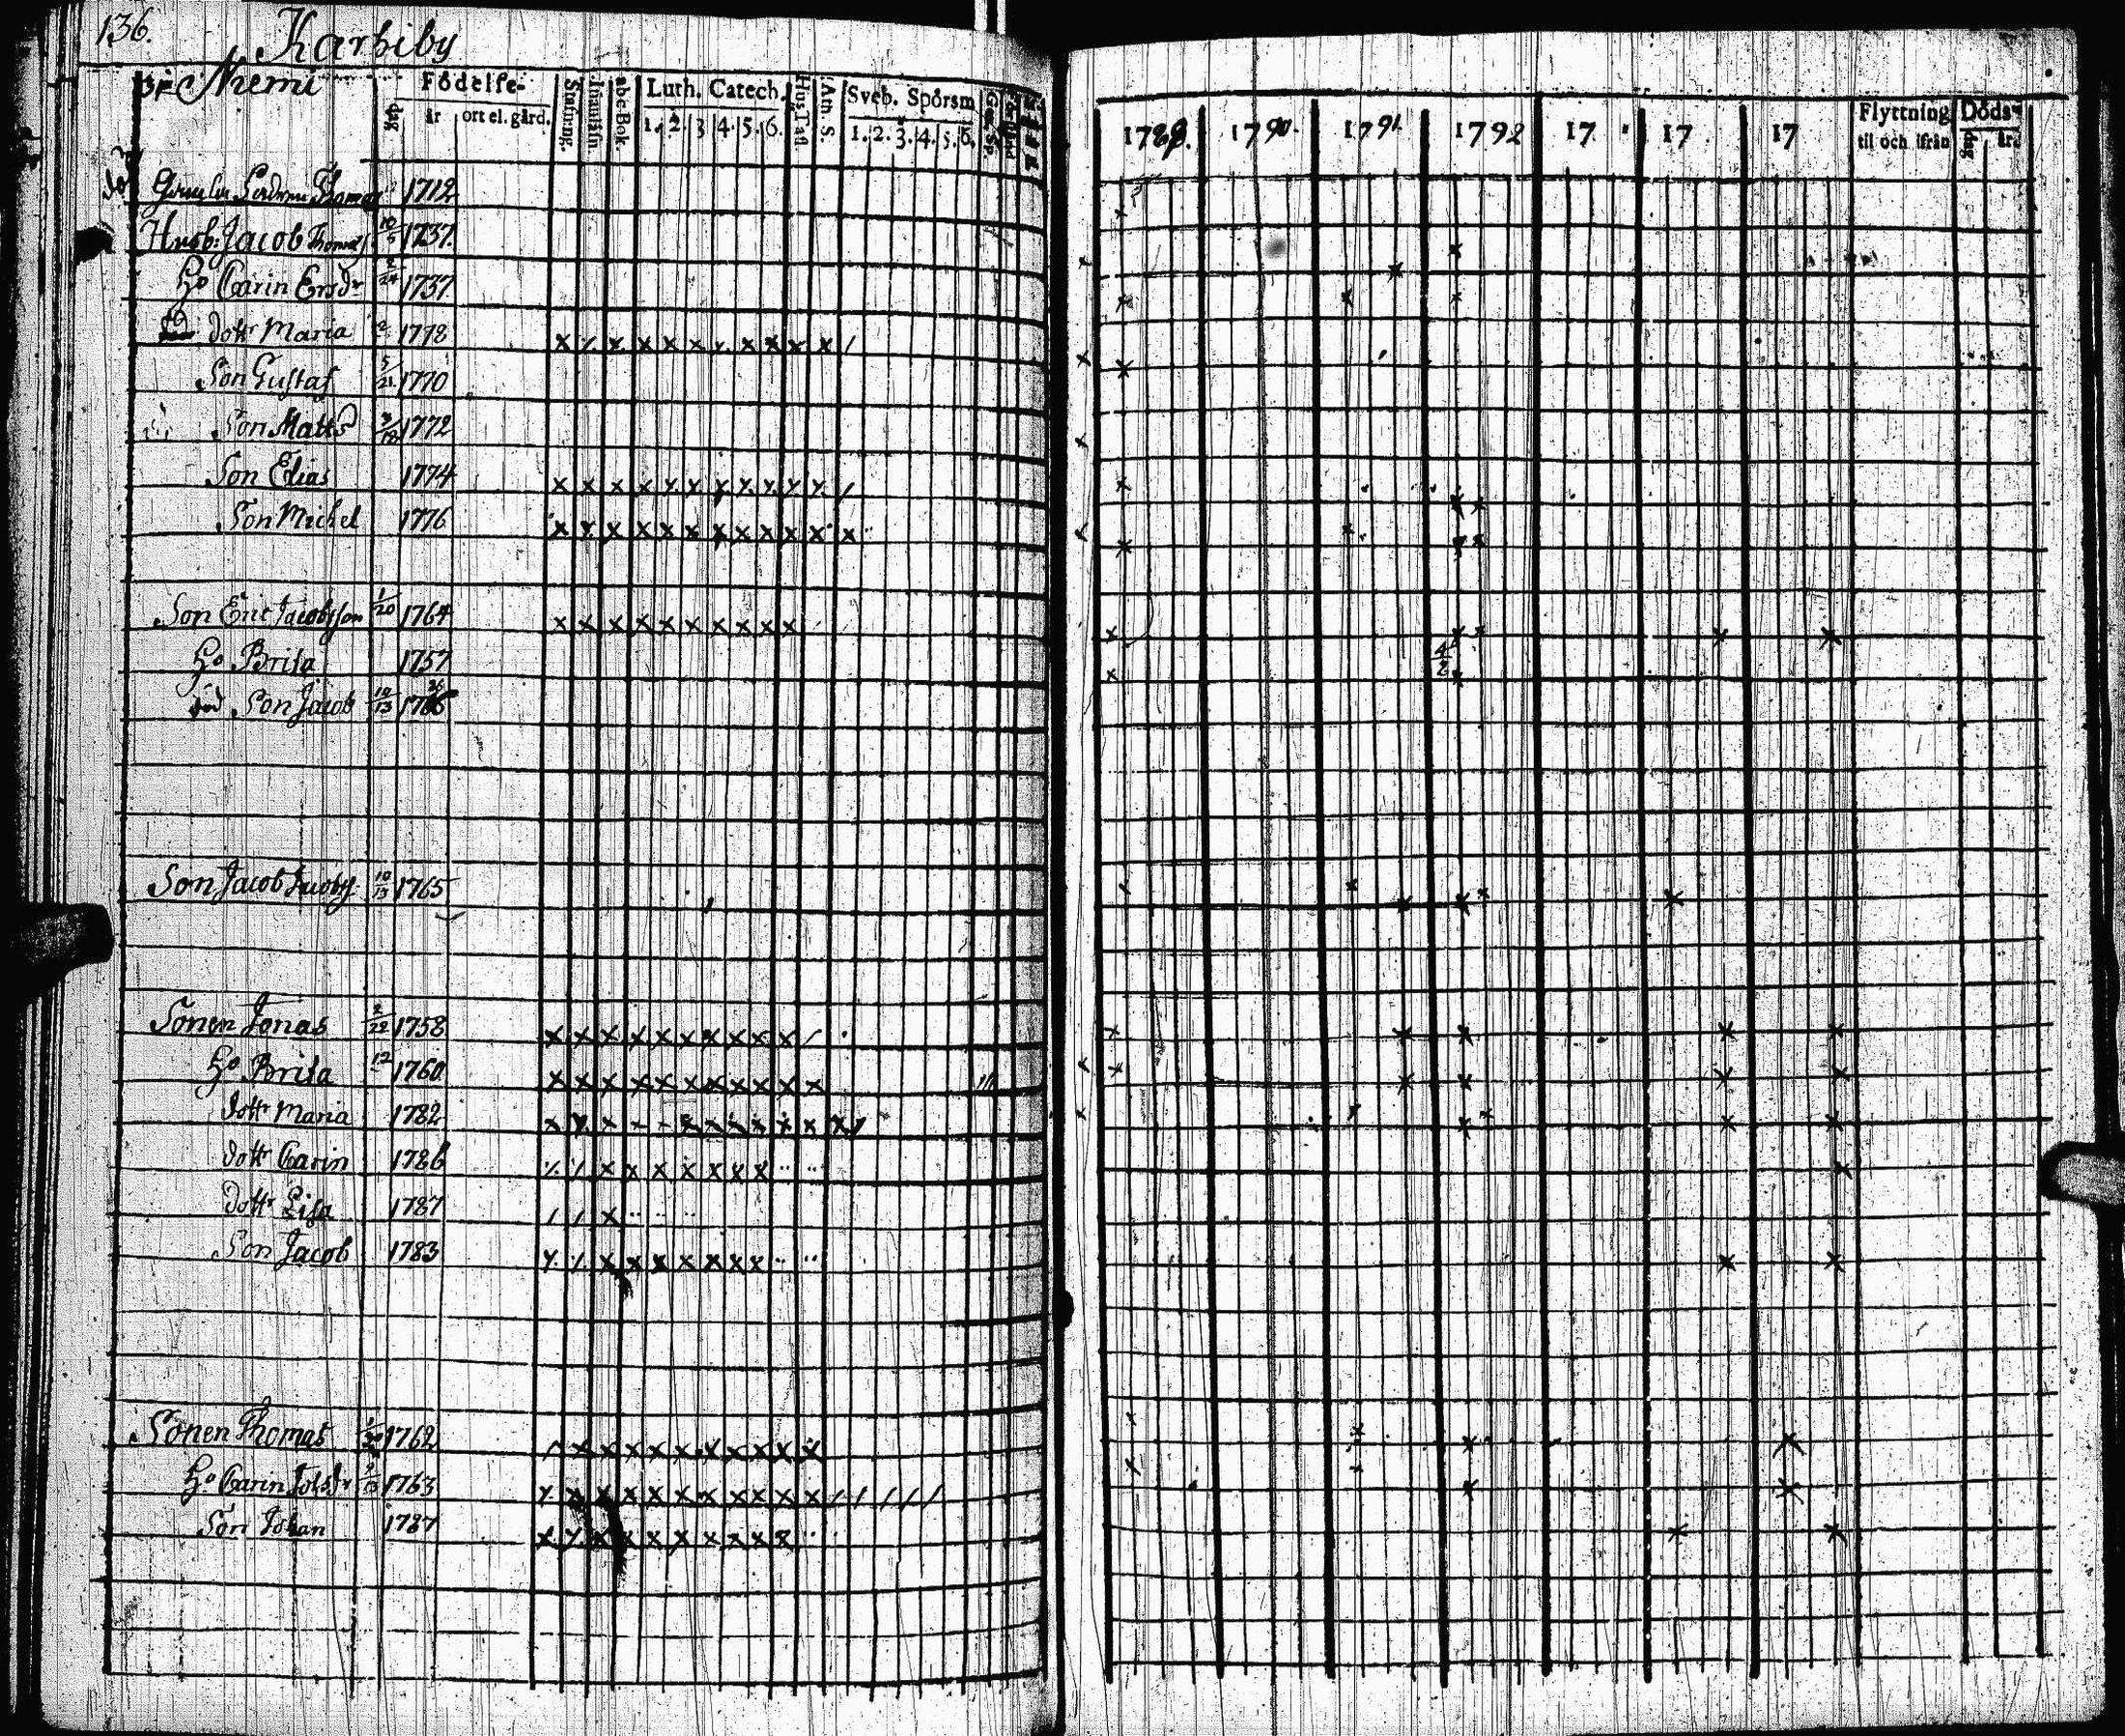 136. Karbiby
Niemi
Födelse-
dag år ort el. gård.
Stafning. Innanläsn. abc Bok. Luth. Catech. 1. 2. 3 4. 5. 6. Hus Tafl. Ath. S. Sveb. Spörsm 1. 2. 3. 4. 5. 6.
1789. 1790. 1791. 1792 17 17 17 Flyttning til och ifrån Döds- dag år.
1712
Husb: Jacob Thomas 10/5 1737.
Ho Carin Ersdr 2/24 1737.
dottr Maria 2 1778
Son Gustaf 5/21 1770
Son Matts 1772
Son Elias 1774
Son Michel 1776
Son Eric Jacobsson 1/20 1764
Ho Brita 1757
Son Jacob 10/13
Son Jacob Jacobss 10/13 1765
Sonen Jonas 2/22 1758
Ho Brita 12 1760
dottr Maria 1782
dottr Carin 1786
dottr Lisa 1787
Son Jacob 1783
Sonen Thomas 1762
Ho Carin 1763
Son Johan 1787